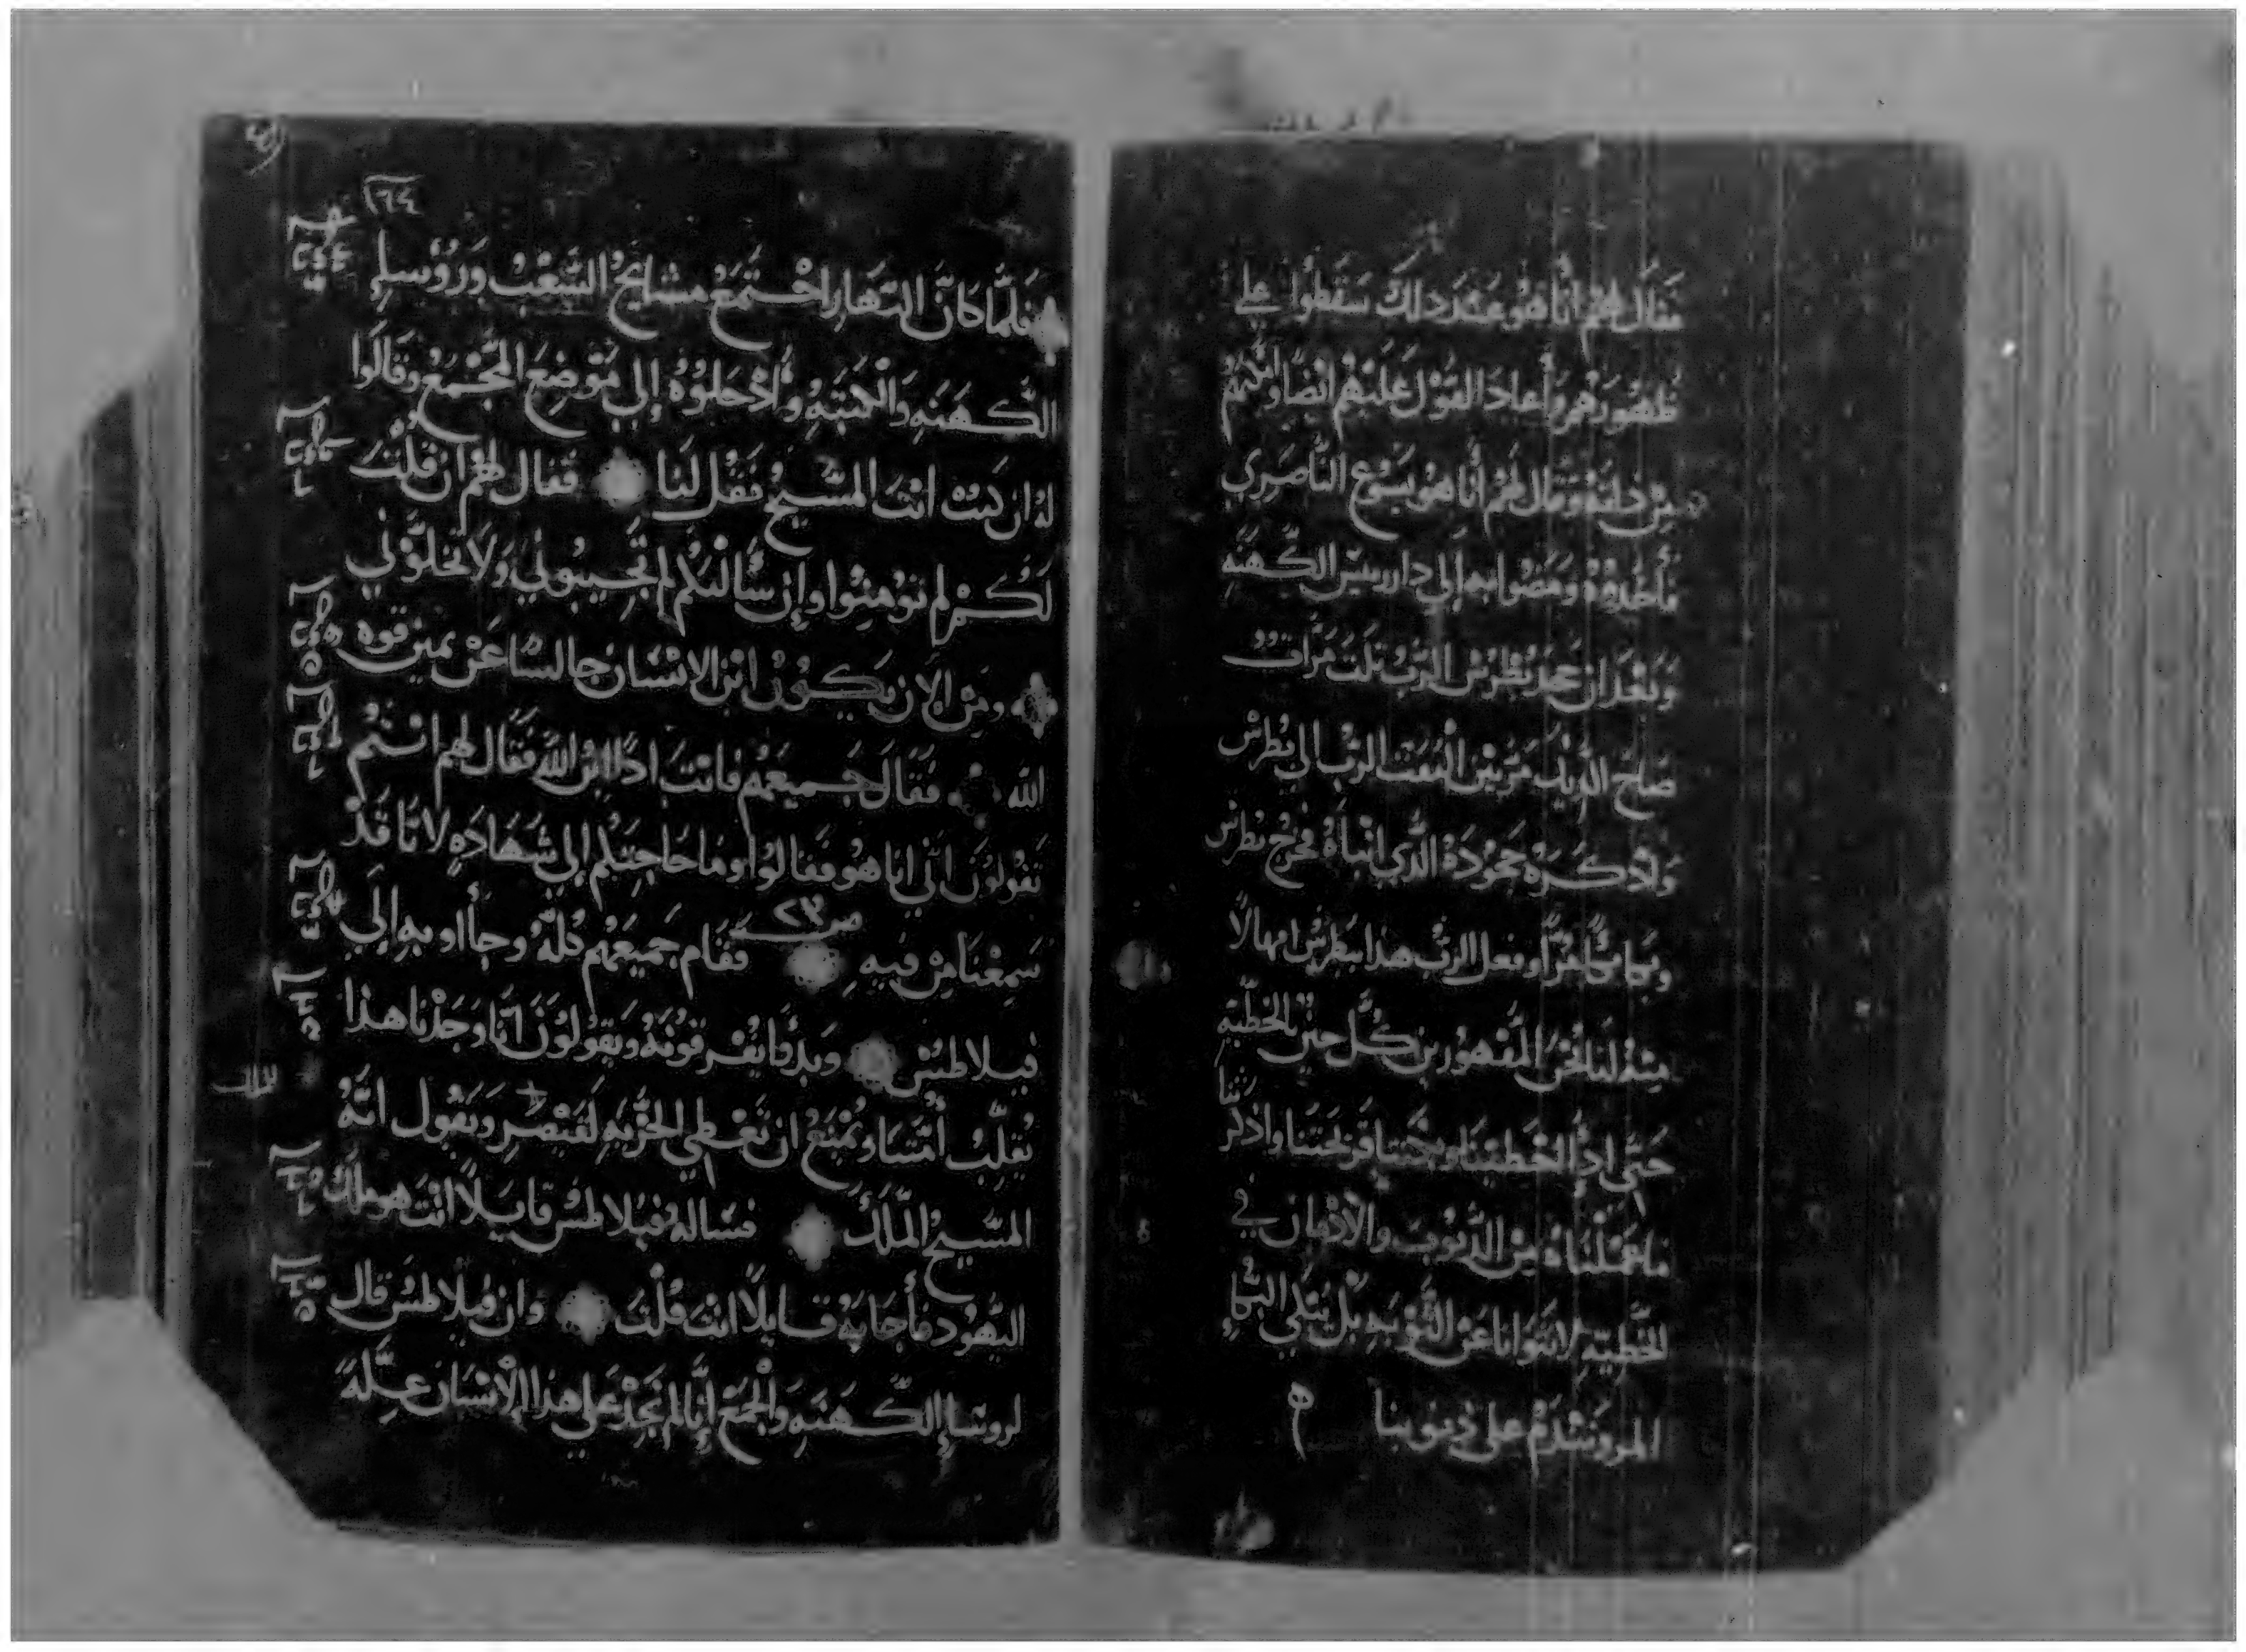 فقال لهم أنا هو عند ذلك سقطوا علي
ظهورهم وأعاد القول عليهم ايضا
من ذاته وقال لهم أنا هو يسوع الناصري
فأخذوه ومضوا به إلي دار رييس الكهنه
وبعد ان جحد بطرس الرب تلت مرات
صاح الديك مرتين التفت الرب الي بطرس
واذكره جحوده الذي انبأه فخرج بطرس
وبكا بكاً مراً وفعل الرب هذا ببطرس امهالاً
منه لنا نحن المقهورين كل حين بالخطية
حتي اذا اخطينا وبكتنا قريحتنا واذكرتنا
ما عملناه من الذنوب والادمان في
الخطيه لا نتوانا عن التوبه بل نبكي البكاء
المر وندم علي ذنوبنا
١٦٤
فلمَّا كانَ النَّهار اجْتمَعَ مشايخُ الشَّعْبْ ورَؤُسا
الكهنه والكتبه وأدْخلوُهُ إلي مَوْضِعَ المجْمَع وقالوا
له ان كنت انت المسيح فقل لنا فقال لهم ان قلت
لكم لم تؤمنوا وإن سألتكم لم تجيبوني ولا تخلوني
ومن الان يكون ابن الانسان جالسا عن يمين قوه
الله فقال جميعهم فانت اذًا ابن الله فقال لهم انتم
تقولون اني انا هو فقالوا وما حاجتكم إلي شهاده لانا قد
ص ٢٣
سمعنا من فيه فقام جميعهم كله وجأاو به إلي
فيلاطس وبدوا يقرقونه ويقولون انا وجدنا هذا
يقلب أمتنا ويمنع ان تعطي الجزيه لقيصر ويقول انه
المسيح الملك فسأله فيلاطس قايلاً انت هو ملك
اليهود فأجابه قايلاً انت قلت وان فيلاطس قال
لروسا الكهنه والجمع إنا لم نجد علي هذا الإنسان عله